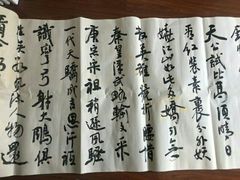 天公試比高須晴日
看红装素裹分外妖
嬈江山如此多嬌引無
数英雄競折腰惜
秦皇漢武略輸文采
唐宗宋祖稍遜風騷
一代天驕成吉思汗祗
識彎弓射大鵰俱
往矣数風流人物還